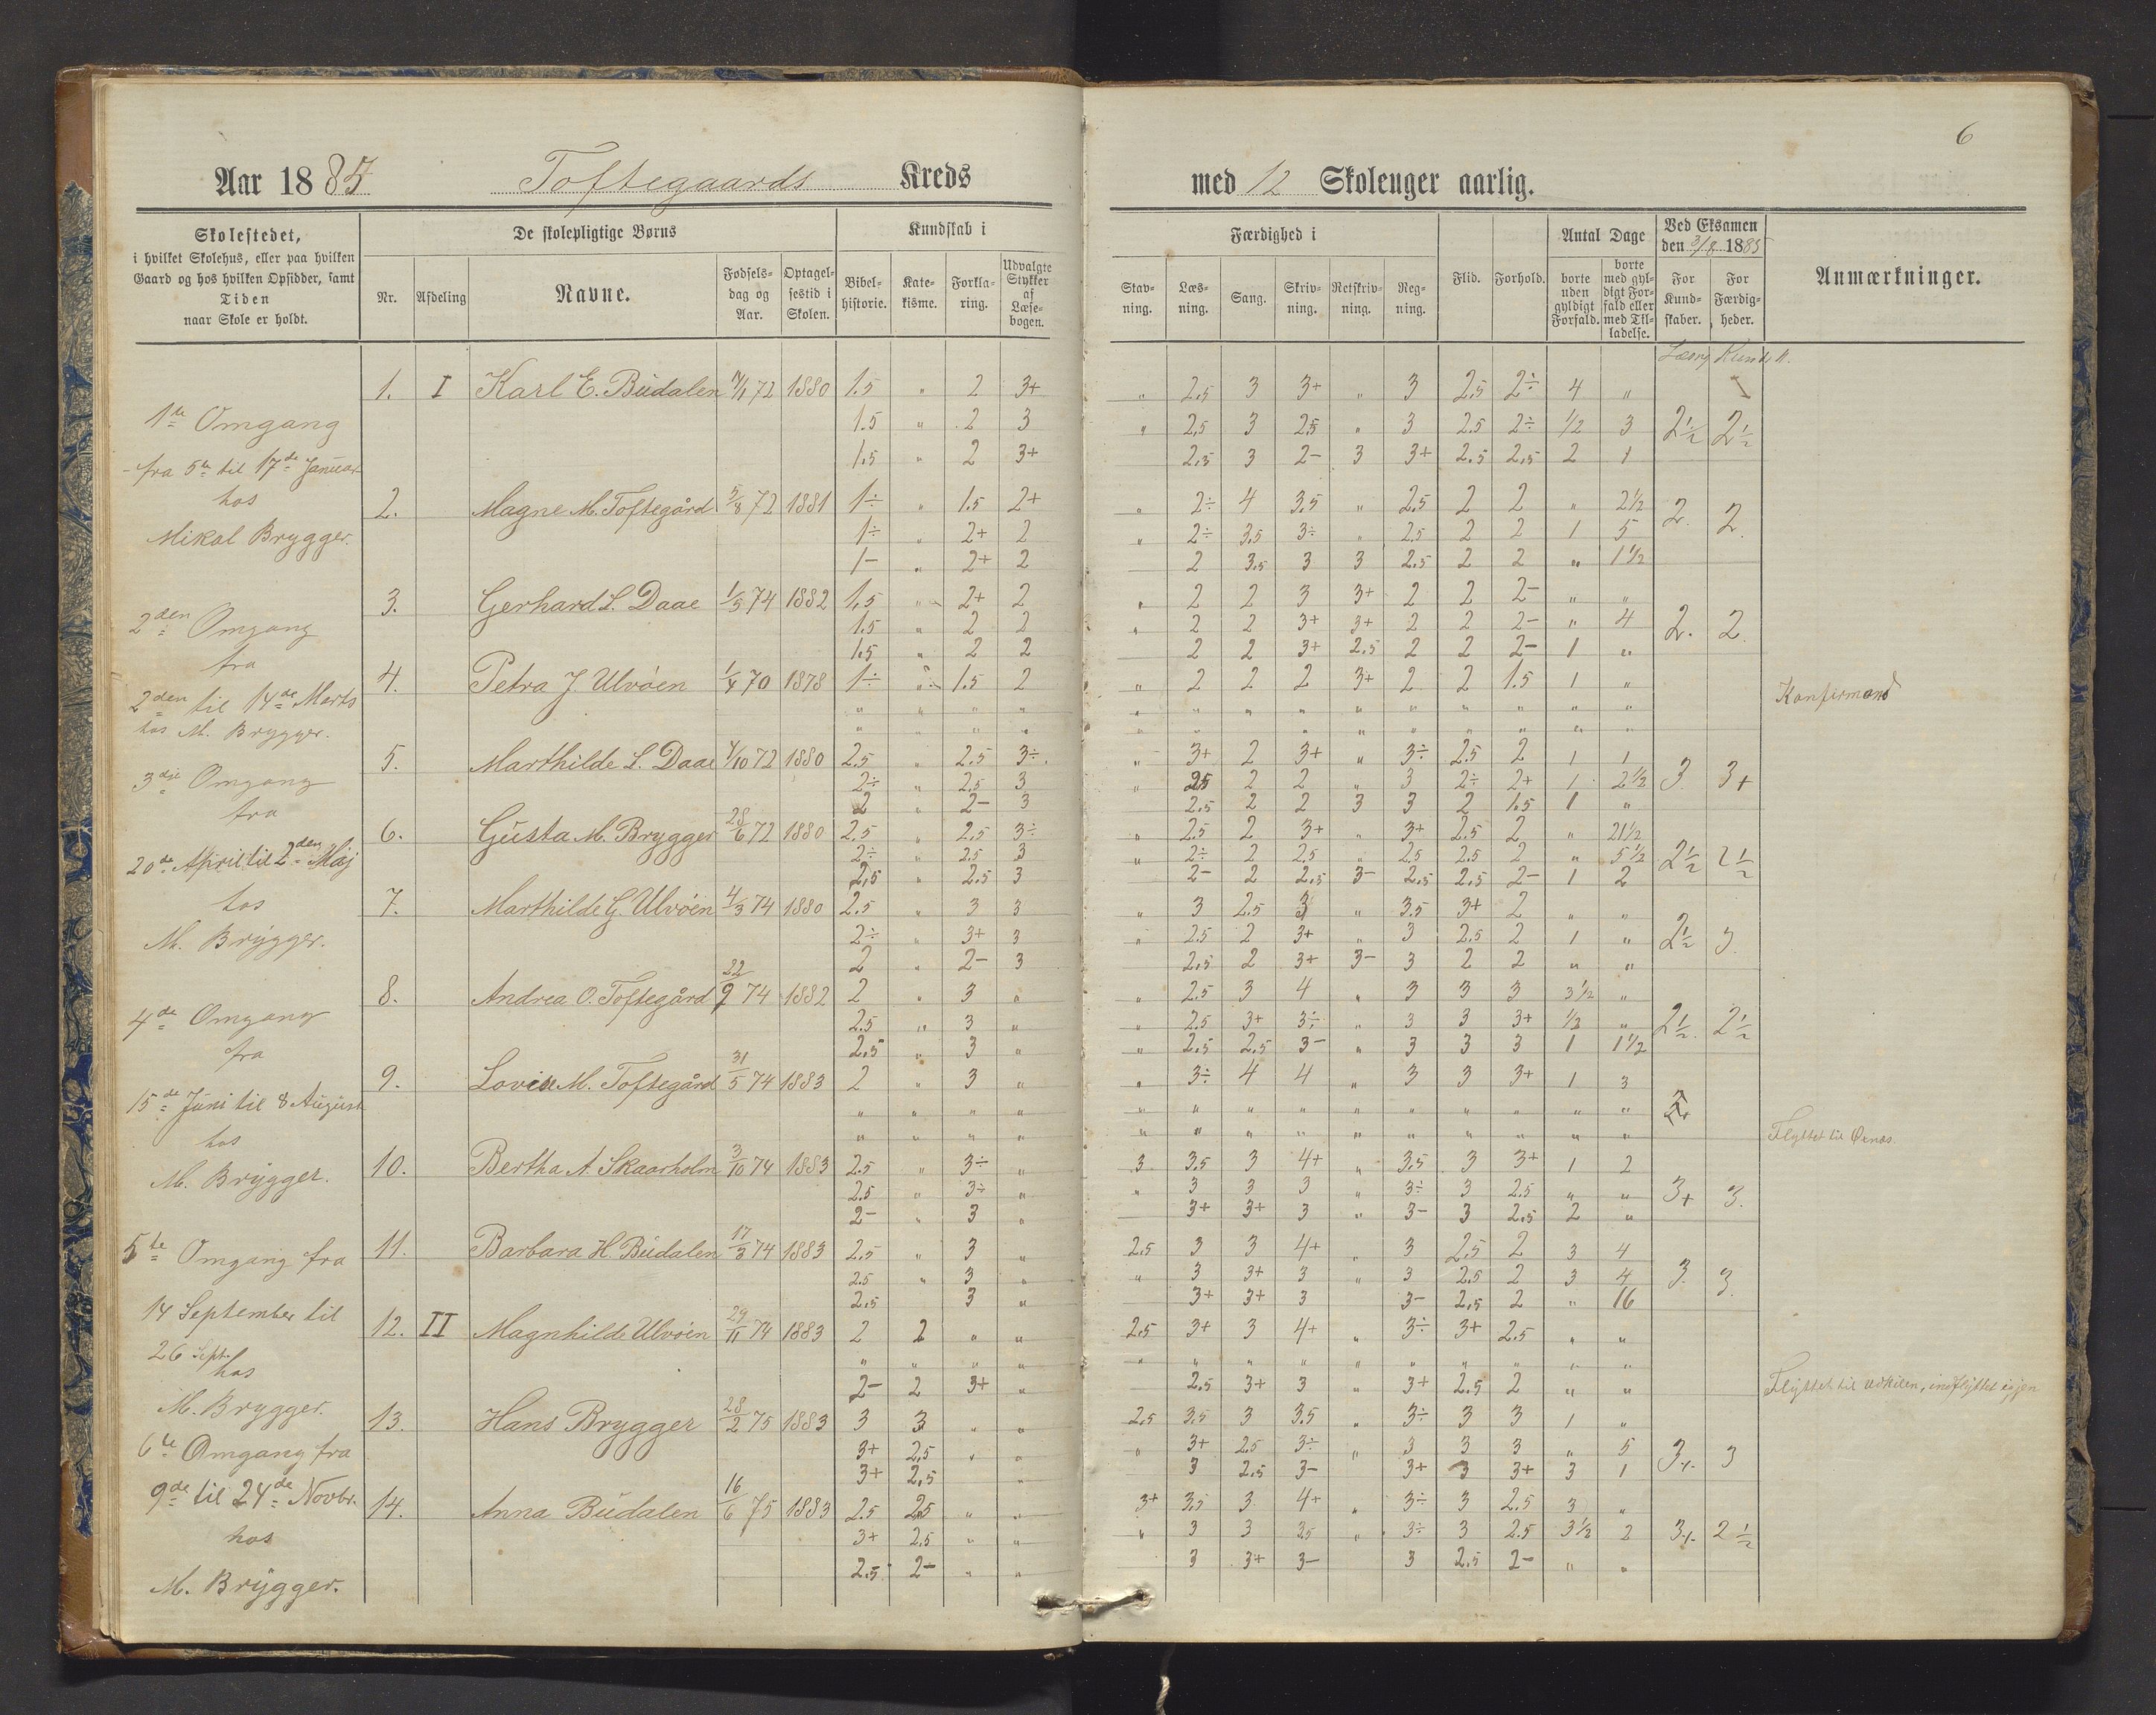 6
Aar 1885 Toftegaards Kreds med 12 Skoleuger aarlig.
Skolestedet, i hvilket Skolehus, eller paa hvilken Gaard og hos hvilken Opsidder, samt Tiden naar Skole er holdt.
De skolepligtige Børns
Nr. Afdeling Navne. Fødselsdag og Aar. Optagelsestid i Skolen.
Kundskab i
Bibelhistorie. Katekisme. Forklaring. Udvalgte Stykker af Læsebogen.
Færdighed i
Stavning. Læsning. Sang. Skrivning. Retskrivning. Regning.
Flid. Forhold.
Antal Dage
borte uden gyldigt Forfald. borte med gyldigt Forfald eller med Tilladelse.
Ved Eksamen den 3/8 1885
For Kundskaber. For Færdigheder.
Anmærkninger.
1ste Omgang
fra 5te til 17de Januar
hos
Mikal Brygger.
2den Omgang
fra
2den til 14de Marts
hos M. Brygger.
3die Omgang
fra
20de April til 2den Maj
hos
M. Brygger.
4de Omgang
fra
15de Juni til 8 August
hos
M. Brygger.
5te Omgang fra
14 September til
26 Sept.
hos
M. Brygger.
6te Omgang fra
9de til 24de Novbr.
hos
M. Brygger.
1. I Karl E. Büdalen 72 1880 1.5 " 2 3+ " 2.5 3 3+ " 3 2.5 2÷ 4 "
1.5 " 2 3 " 2.5 3 2.5 " 3 2.5 2÷ 1/2 3 2 1/2 2 1/2
1.5 " 2 3+ 2.5 3 2- 3 3+ 2.5 2.5 2 1
2. Magne M. Toftegård 5/8 72 1881 1÷ " 1.5 2+ " 2÷ 4 3.5 " 2.5 2 2 " 2 1/2 2. 2.
1÷ " 2+ 2 " 2÷ 3.5 3÷ " 2.5 2 2 1 5
1- " 2+ 2 2 3.5 3 3 2.5 2 2 " 1 1/2
3. Gerhard L. Daae 1/5 74 1882 1.5 " 2+ 2 " 2 2 3 3+ 2 2 2- " "
1.5 " 2 2 " 2 2 3+ 3+ 2 2 2- " 4 2. 2.
1.5 " 2 2 2 2 3+ 2.5 2 2 2- 1 "
4. Petra J. Ulvöen 1/4 70 1878 1÷ " 1.5 2 " 2 2 2 3+ 2 2 1.5 1 " Konfirmand
5. Marthilde L. Daae 4/10 72 1880 2.5 " 2.5 3÷ " 3+ 2 3+ " 3÷ 2.5 2 1 1
2÷ " 2.5 3 " 2.5 2 2 " 3 2÷ 2+ 1 2 1/2 3 3+
2 " 2- 3 2.5 2 2 3 3 2 1.5 1 "
6. Gusta M. Brygger 28/6 72 1880 2.5 " 2.5 3÷ " 2.5 2 3+ " 3+ 2.5 2 " 21 1/2
2÷ " 2.5 3 " 2÷ 2 2.5 " 2.5 2.5 2 " 5 1/2 2 1/2 2 1/2
2.5 " 2.5 3 2- 2 2.5 3- 2.5 2.5 2- 1 2
7. Marthilde G. Ulvöen 4/3 74 1880 2.5 " 3 3 " 3 2.5 3 " 3.5 3+ 2 " "
2÷ " 3+ 3 " 2.5 2 3+ " 3 2.5 2 1 " 2 1/2 3
2 " 2- 3 2.5 2 3+ 3- 3 2 2 " "
8. Andrea O. Toftegård 74 1882 2 " 3 " " 2.5 3 4 " 3 3 3 3 1/2 "
2.5 " 3 " " 2.5 3+ 3÷ " 3 3 3+ 1/2 " 2 1/2 2 1/2
2.5 " 3 " " 2.5 2.5 3- " 3 3 3 1 1 1/2
9. Lovise M. Toftegård 31/5 74 1883 2 " 3 " " 3÷ 4 4 " 3 3 3+ 1 3
Flyttet til
10. Bertha A. Skaarholm 3/10 74 1883 2.5 " 3÷ " 3 3.5 3 4+ " 3.5 3 3+ 1 2
2.5 " 3÷ " " 3 3 3 " 3÷ 3 2.5 " " 3+ 3.
2- " 3 " 3+ 3+ 3 " 3- 3 2.5 2 "
11. Barbara H. Büdalen 17/3 74 1883 2.5 " 3 " 2.5 3 3 4+ " 3 2.5 2 3 4
2.5 " 3 " " 3 3+ 3 " 3 2.5 2 3 4 3. 3.
2.5 3 " 3+ 3+ 3 3- 2.5 2 " 16
12. II Magnhilde Ulvöen 29/11 74 1883 2 2 " " 2.5 3+ 3 4+ " 3÷ 3+ 2.5 " "
2- 2 3+ " 2.5 3+ 3 " 3+ 2.5 2 " " Flyttet til indflyttet igjen
13. Hans Brygger 28/2 75 1883 3 3 " " 2.5 3.5 3 3.5 " 3÷ 3 3 1 "
3+ 2.5 " " " 3+ 2.5 3÷ " 3 3 3 " 5 3+ 3
3+ 2.5 " 3 2.5 3- 3+ 3 3+ 3 1
14. Anna Büdalen 16/6 75 1883 2.5 2.5 " " 3+ 3.5 3 4+ " 3÷ 3 2.5 3 "
3+ 2.5 " " " 3 3 3.5 " 3÷ 3 2.5 3 1/2 2 3+ 2 1/2
2.5 2- " " 3 3+ 3- 3 2.5 2- " "